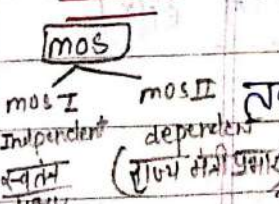 MOS
MOS I MOS II
Independent dependent
स्वतंत्र (राज्य मंत्री